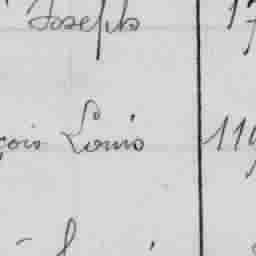 Joseph 17
çois Louis 119